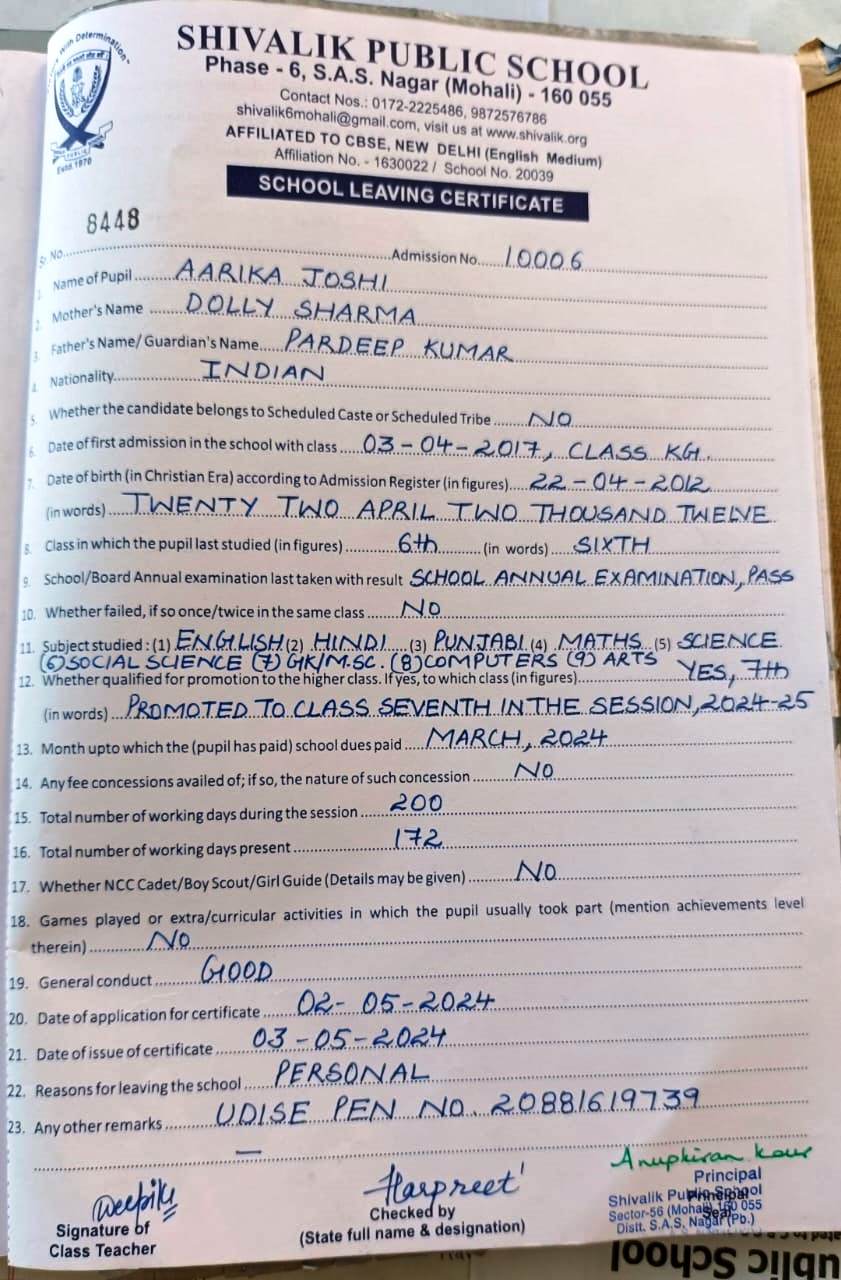 With Determination
PUBLIC
Estd. 1970
SHIVALIK PUBLIC SCHOOL
Phase - 6, S.A.S. Nagar (Mohali) - 160 055
Contact Nos.: 0172-2225486, 9872576786
shivalik6mohali@gmail.com, visit us at www.shivalik.org
AFFILIATED TO CBSE, NEW DELHI (English Medium)
Affiliation No. - 1630022 / School No. 20039
SCHOOL LEAVING CERTIFICATE
8448
Sr. No. Admission No. 10006
1. Name of Pupil AARIKA JOSHI
2. Mother's Name DOLLY SHARMA
3. Father's Name/ Guardian's Name PARDEEP KUMAR
4. Nationality INDIAN
5. Whether the candidate belongs to Scheduled Caste or Scheduled Tribe NO
6. Date of first admission in the school with class 03-04-2017, CLASS KG.
7. Date of birth (in Christian Era) according to Admission Register (in figures) 22-04-2012
(in words) TWENTY TWO APRIL TWO THOUSAND TWELVE
8. Class in which the pupil last studied (in figures) 6th (in words) SIXTH
9. School/Board Annual examination last taken with result SCHOOL ANNUAL EXAMINATION, PASS
10. Whether failed, if so once/twice in the same class NO
11. Subject studied : (1) ENGLISH (2) HINDI (3) PUNJABI (4) MATHS (5) SCIENCE
(6) SOCIAL SCIENCE (7) GK/M.SC. (8) COMPUTERS (9) ARTS
12. Whether qualified for promotion to the higher class. If yes, to which class (in figures) YES, 7th
(in words) PROMOTED TO CLASS SEVENTH IN THE SESSION, 2024-25
13. Month upto which the (pupil has paid) school dues paid MARCH, 2024
14. Any fee concessions availed of; if so, the nature of such concession NO
15. Total number of working days during the session 200
16. Total number of working days present 172
17. Whether NCC Cadet/Boy Scout/Girl Guide (Details may be given) NO
18. Games played or extra/curricular activities in which the pupil usually took part (mention achievements level
therein) NO
19. General conduct GOOD
20. Date of application for certificate 02-05-2024
21. Date of issue of certificate 03-05-2024
22. Reasons for leaving the school PERSONAL
23. Any other remarks UDISE PEN NO. 20881619739
Deepika Harpreet Anupkiran Kaur
Signature of Class Teacher
Checked by
(State full name & designation)
Principal
Shivalik Public School
Sector-56 (Mohali) 160 055
Distt. S.A.S. Nagar (Pb.)
Principal
Seal
ublic School